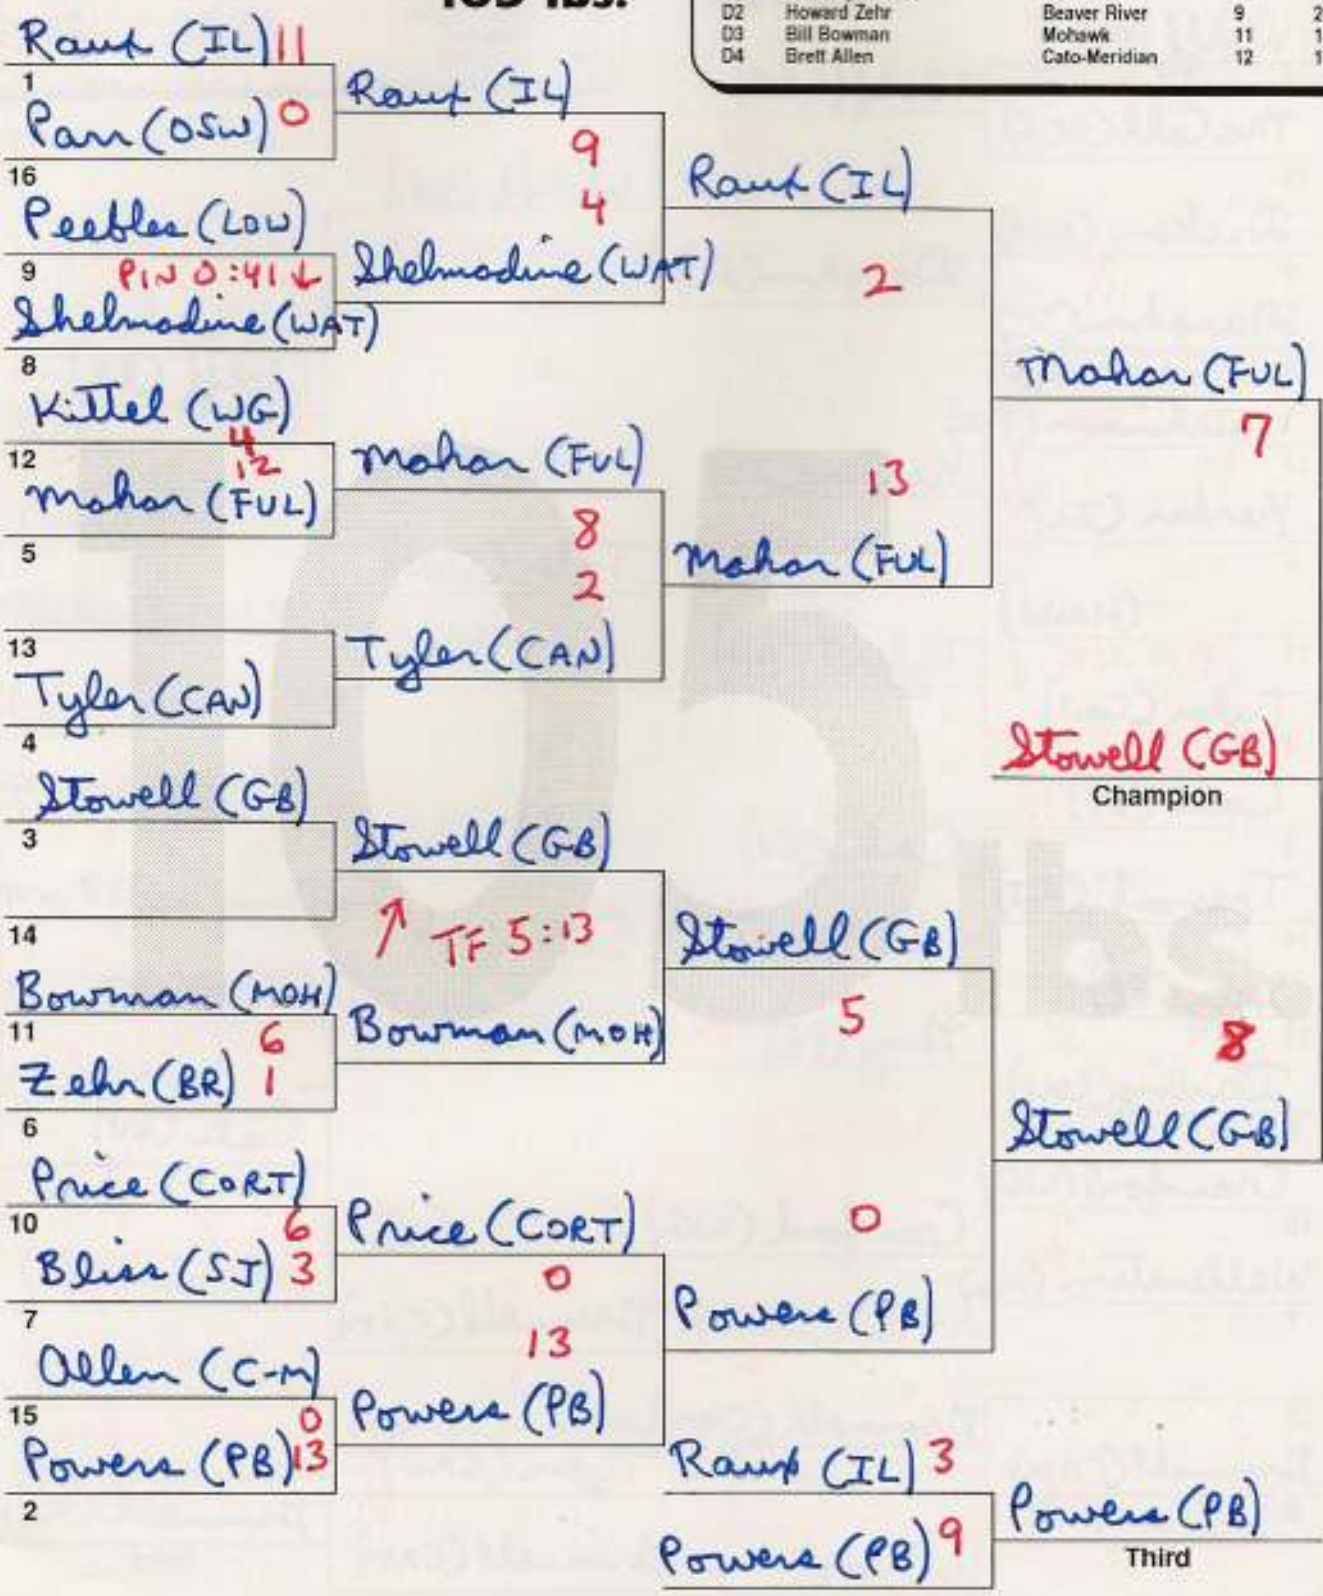 105 lbs.
D2 Howard Zehr Beaver River 9 2
D3 Bill Bowman Mohawk 11 1
D4 Brett Allen Cato-Meridian 12 1
Raux (IL) 11
1
Parr (OSW) 0
16
Peebles (LOW)
9 PIN 0:41 ↓
Shelmadine (WAT)
8
Kittel (WG)
4
12
12
Mahar (FUL)
5
13
Tyler (CAN)
4
Stowell (GB)
3
14
Bowman (MOH)
11 6
Zehr (BR) 1
6
Price (CORT)
10 6
Bliss (SJ) 3
7
Allen (C-M)
15 0
Powers (PB) 13
2
Raux (IL)
9
4
Shelmadine (WAT)
Mahar (FUL)
8
2
Tyler (CAN)
Stowell (GB)
↗ TF 5:13
Bowman (MOH)
Price (CORT)
0
13
Powers (PB)
Raux (IL)
2
13
Mahar (FUL)
Stowell (GB)
5
0
Powers (PB)
Mahar (FUL)
7
Stowell (GB)
Champion
8
Stowell (GB)
Raux (IL) 3
Powers (PB) 9
Powers (PB)
Third
105
lbs